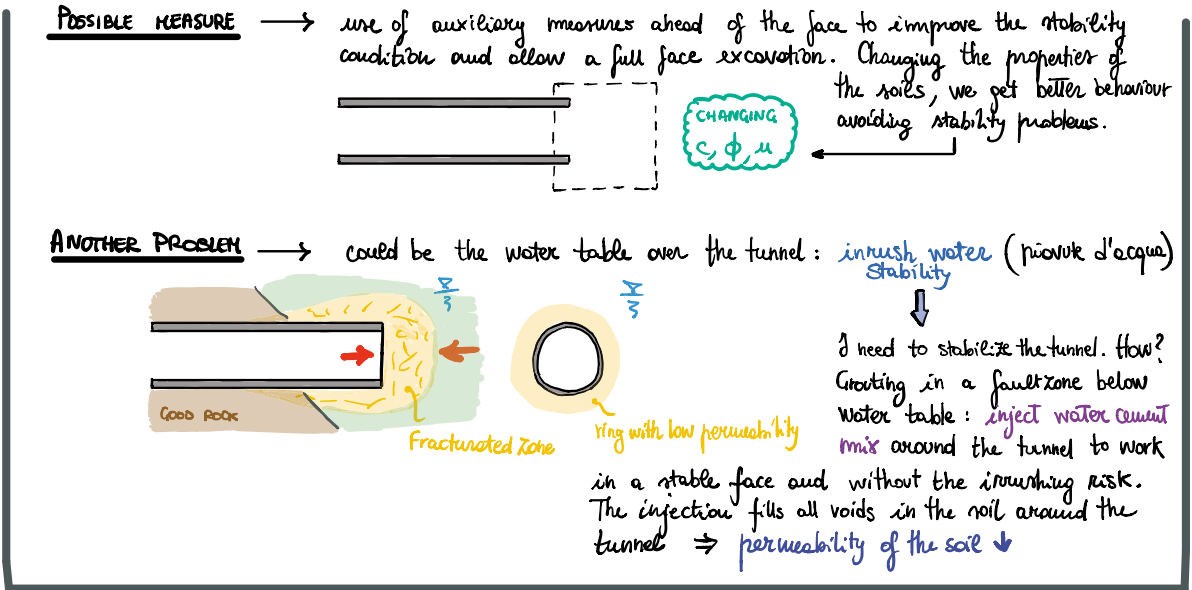 POSSIBLE MEASURE → use of auxiliary measures ahead of the face to improve the stability
condition and allow a full face excavation. Changing the properties of
the soils, we get better behaviour
avoiding stability problems.
CHANGING
c, ϕ, μ
ANOTHER PROBLEM → could be the water table over the tunnel: inrush water (piovute d'acqua)
stability
I need to stabilize the tunnel. How?
Grouting in a fault zone below
water table: inject water cement
mix around the tunnel to work
GOOD ROCK
Fracturated zone
ring with low permeability
in a stable face and without the inrushing risk.
The injection fills all voids in the soil around the
tunnel ⇒ permeability of the soil ↓